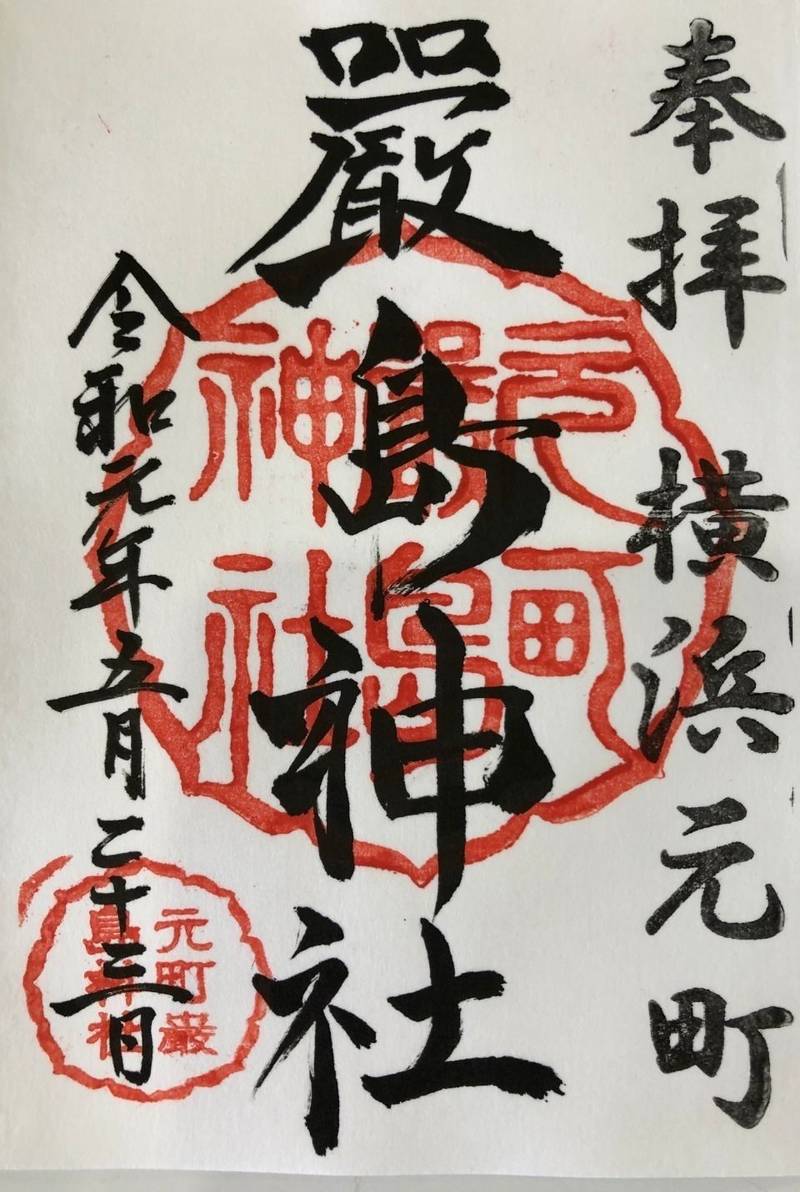 奉拝 横浜元町
嚴島神社
令和元年五月二十三日
元町
嚴島
神社
元町巌
島神社